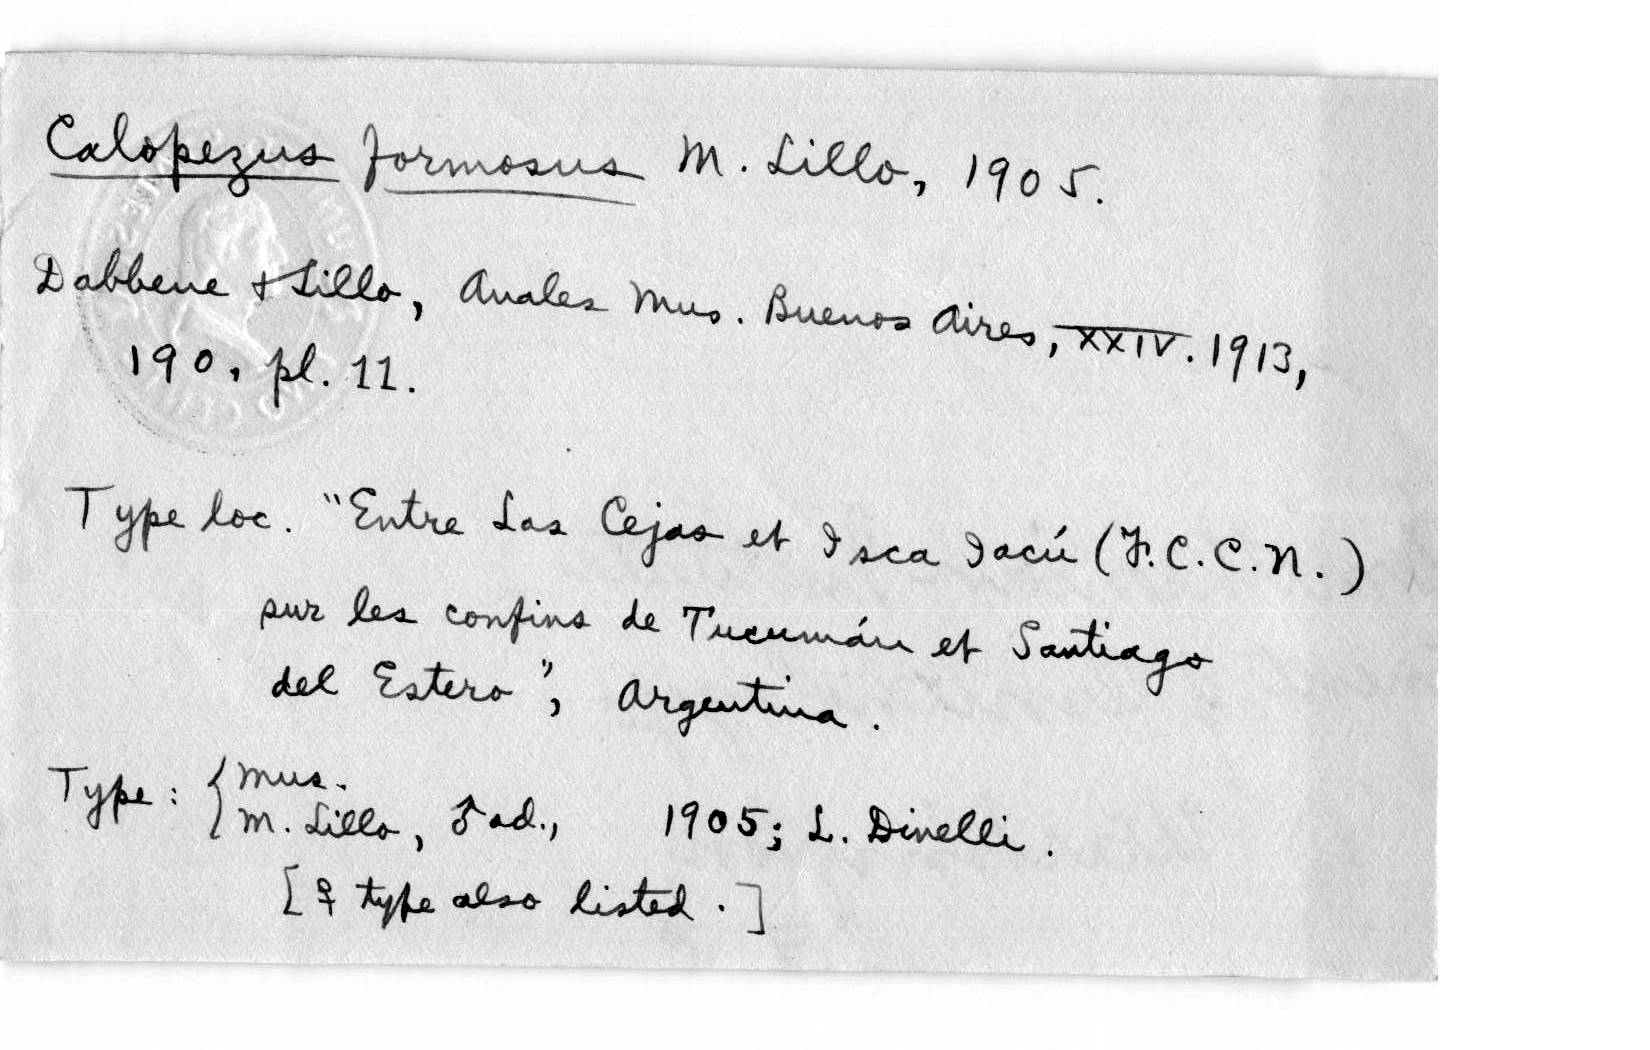 Calopezus formosus M. Lillo, 1905.
Dabbene + Lillo, Anales Mus. Buenos Aires, XXIV. 1913,
190, pl. 11.
Type loc. "Entre Las Cejas et Isca Iacú (F.C.C.N.)
sur les confins de Tucumán et Santiago
del Estero", Argentina.
Type: { Mus.
M. Lillo, ♂ ad., 1905; L. Dinelli.
[♀ type also listed.]